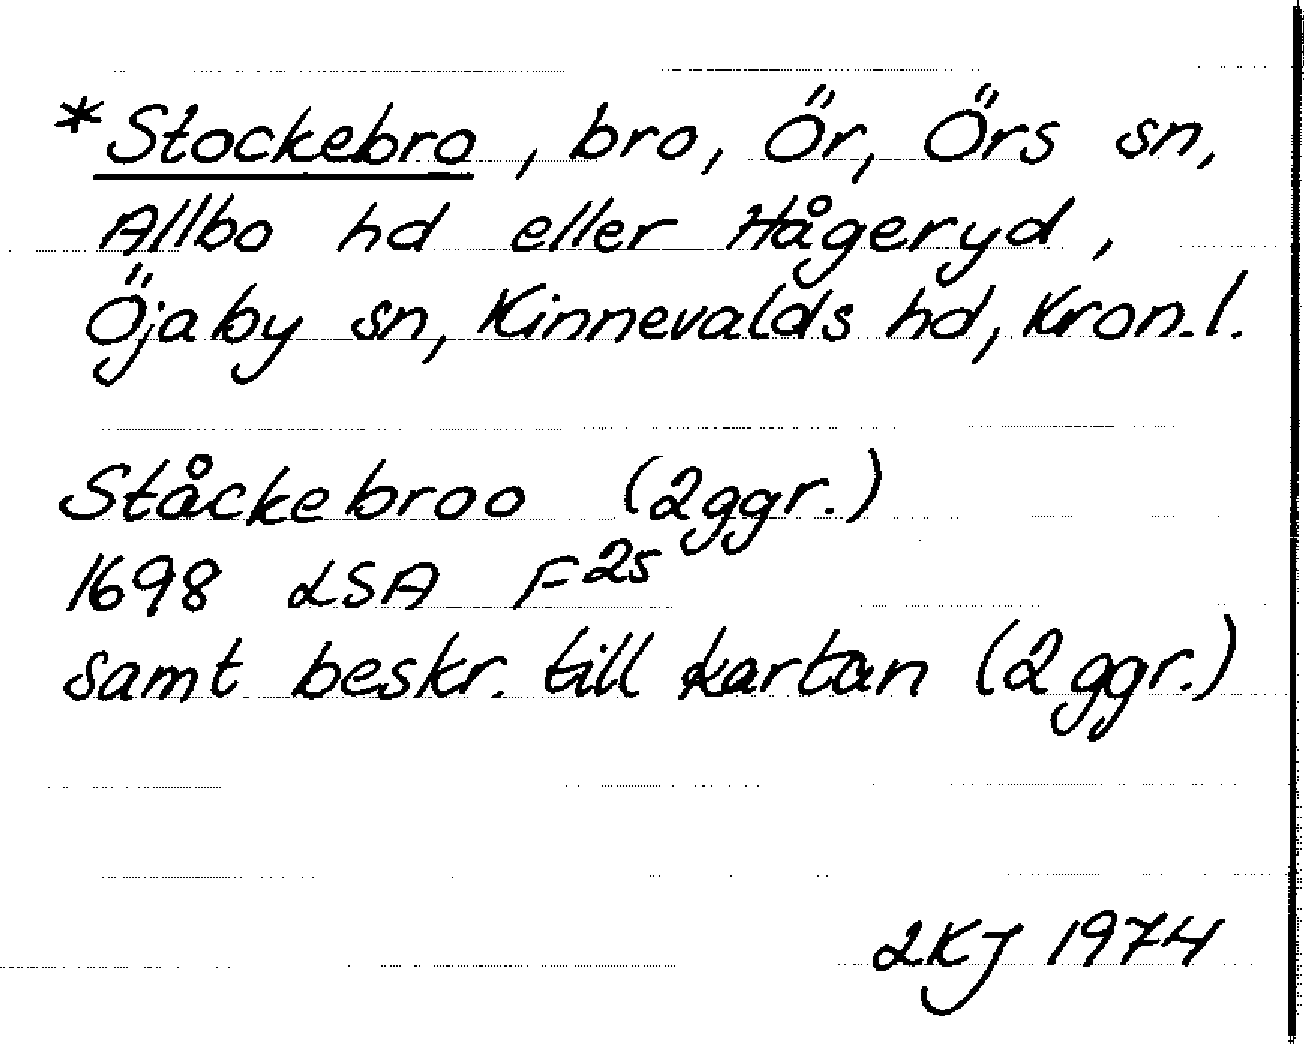 *Stockebro, bro, Ör, Örs sn,
Allbo hd eller Hågeryd,
Öjaby sn, Kinnevalds hd, Kron.l.
Ståckebroo (2ggr.)
1698 LSA F25
samt beskr. till kartan (2ggr.)
LKJ 1974